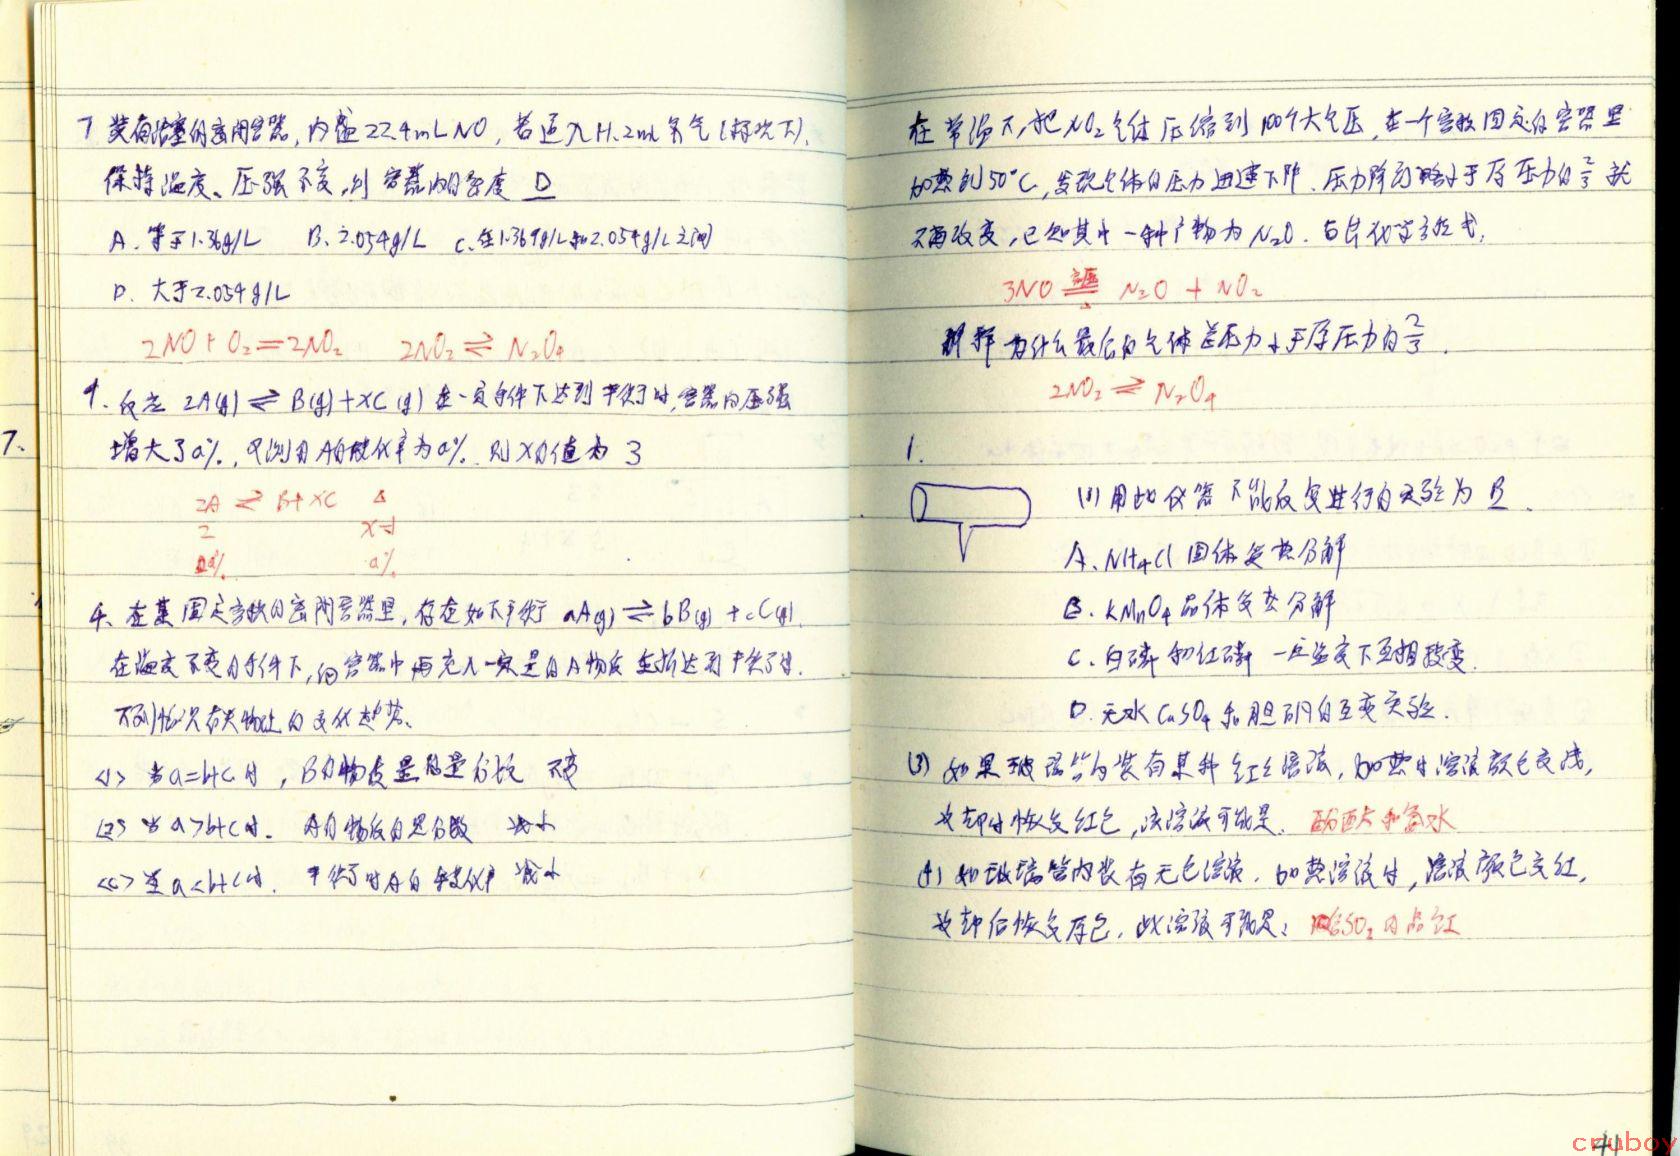 7 装有活塞的密闭容器，内盛22.4mL NO，若通入11.2mL氧气(标况下)，
保持温度、压强不变，则容器内的密度 D
A. 等于1.369g/L B. 2.054g/L C. 在1.369g/L和2.054g/L之间
D. 大于2.054g/L
2NO+O₂=2NO₂ 2NO₂⇌N₂O₄
9. 反应 2A(g)⇌B(g)+xC(g) 在一定条件下达到平衡时，容器内压强
增大了a%，平衡时A的转化率为a%，则x的值为 3
2A⇌B+xC Δ
2 x-1
a% a%
4、在某固定容积的密闭容器里，存在如下平衡 aA(g)⇌bB(g)+cC(g)
在温度不变的条件下，向容器中再充入一定量的A物质 重新达到平衡时.
下列情况有关物质的变化趋势.
<1> 当a=b+c时，B的物质的量分数 不变
<2> 当a>b+c时. A的物质的量分数 减小
<c> 当a<b+c时. 平衡时A的转化率 减小
7、
在常温下,把NO₂气体压缩到100个大气压，在一个容积固定的容器里
加热到50°C，发现气体的压力迅速下降. 压力降到略小于原压力的2/3就
不再改变，已知其中一种产物为N₂O. 写出化学方程式.
3NO 高压 Δ N₂O + NO₂
解释为什么最后的气体总压力小于原压力的2/3.
2NO₂⇌N₂O₄
1.
(1) 用此仪器不能反复进行的实验为 B.
A. NH₄Cl固体受热分解
B. KMnO₄晶体受热分解
C. 白磷和红磷一定温度下互相转变.
D. 无水CuSO₄和胆矾的互变实验.
(3) 如果玻璃管内装有某种红色溶液，加热时溶液颜色变浅，
冷却时恢复红色，该溶液可能是. 酚酞和氨水
(4) 如玻璃管内装有无色溶液. 加热溶液时，溶液颜色变红，
冷却后恢复原色. 此溶液可能是: 含SO₂的品红
41
cruboy